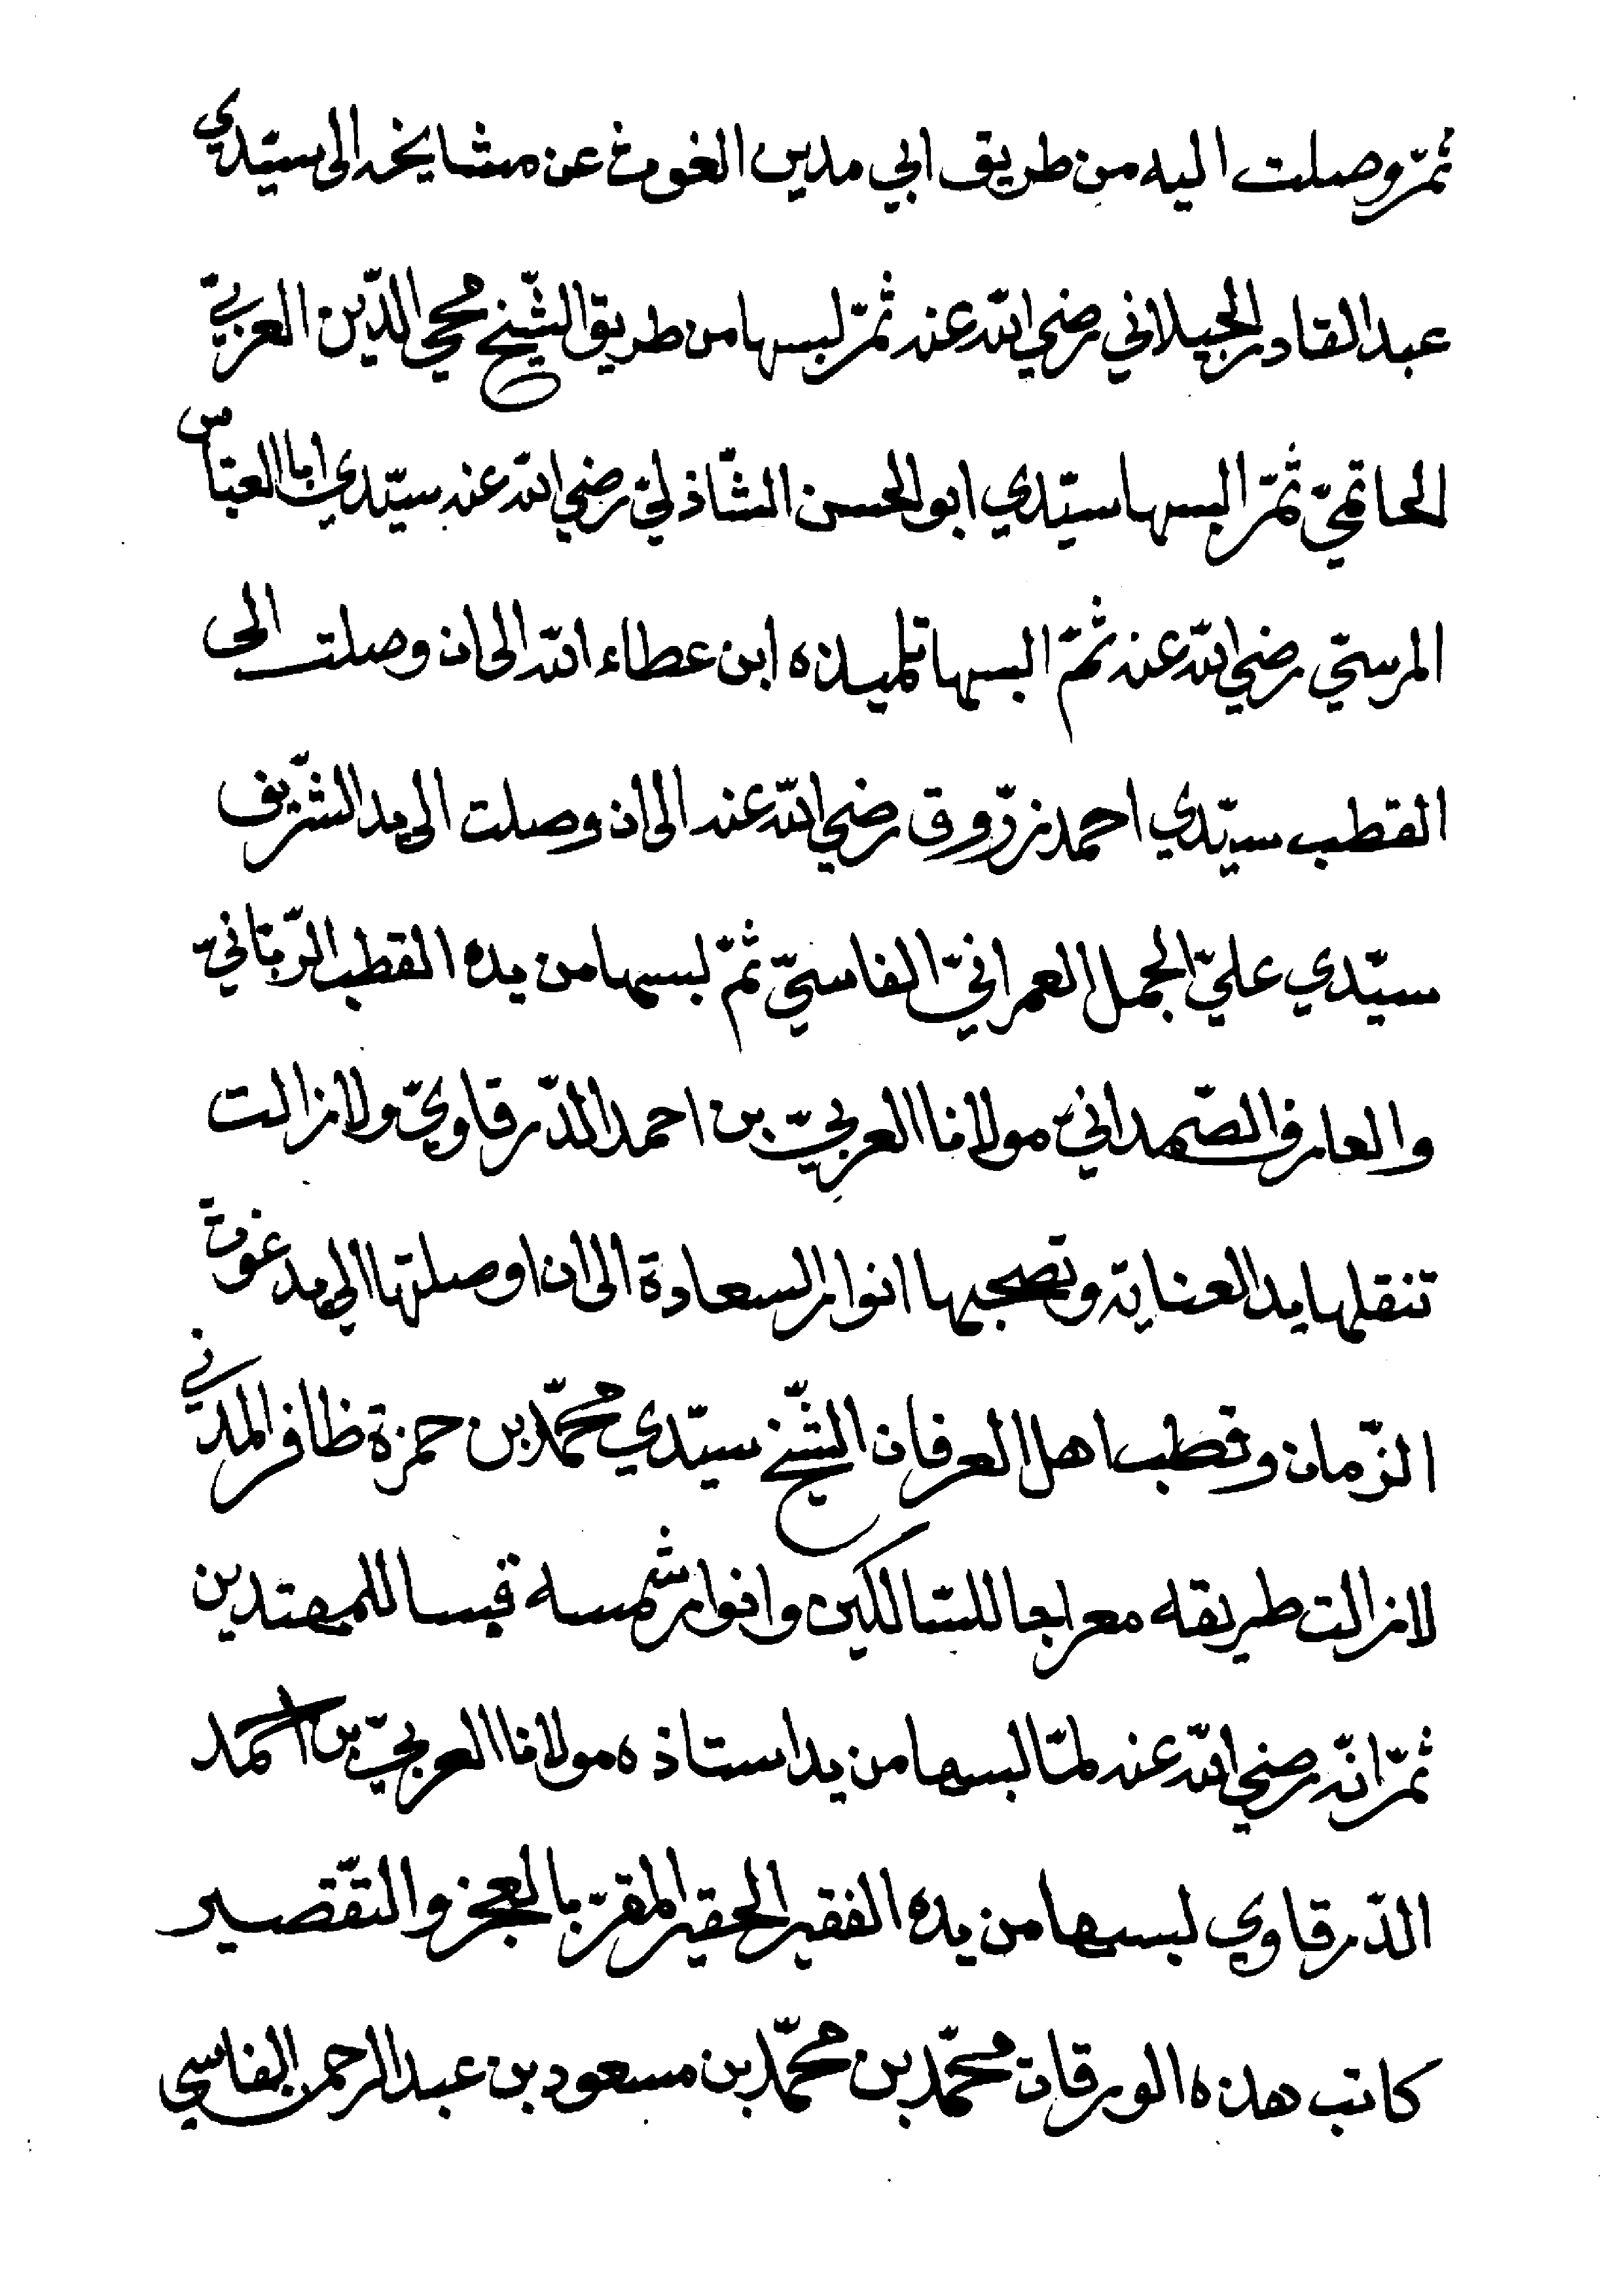 ثمّ وصلت اليه من طريق ابي مدين الغوث عن مشايخه الى سيّدي
عبد القادر الجيلاني رضي الله عنه ثمّ لبسها من طريق الشّيخ محي الدّين العربيّ
الحاتميّ ثمّ البسها سيّدي ابو الحسن الشّاذليّ رضي الله عنه سيّدي ابا العبّاس
المرسيّ رضي الله عنه ثمّ البسها تلميذه ابن عطاء الله الى ان وصلت الى
القطب سيّدي احمد زرّوق رضي الله عنه الى ان وصلت الى يد الشّريف
سيّدي عليّ الجمل العمرانيّ الفاسيّ ثمّ لبسها من يده القطب الرّبّانيّ
والعارف الصّمدانيّ مولانا العربيّ بن احمد الدّرقاويّ ولا زالت
تنقلها يد العناية وتصحبها انوار السعادة الى ان اوصلتها الى يد غوث
الزّمان وقطب اهل العرفان الشّيخ سيّدي محمّد بن حمزة ظافر المدني
لا زالت طريقه معراجا للسّالكين وانوار شمسه قبسا للمهتدين
ثمّ انّه رضي الله عنه لمّا لبسها من يد استاذه مولانا العربيّ بن احمد
الدّرقاوي لبسها من يده الفقير الحقير المقرّ بالعجز والتّقصير
كاتب هذه الورقات محمّد بن محمّد بن مسعود بن عبد الرحمن الفاسي